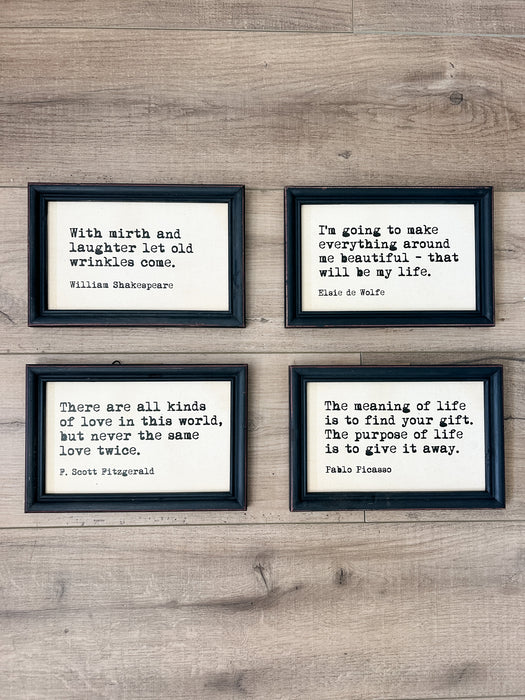 With mirth and
laughter let old
wrinkles come.
William Shakespeare
I'm going to make
everything around
me beautiful - that
will be my life.
Elsie de Wolfe
There are all kinds
of love in this world,
but never the same
love twice.
F. Scott Fitzgerald
The meaning of life
is to find your gift.
The purpose of life
is to give it away.
Pablo Picasso